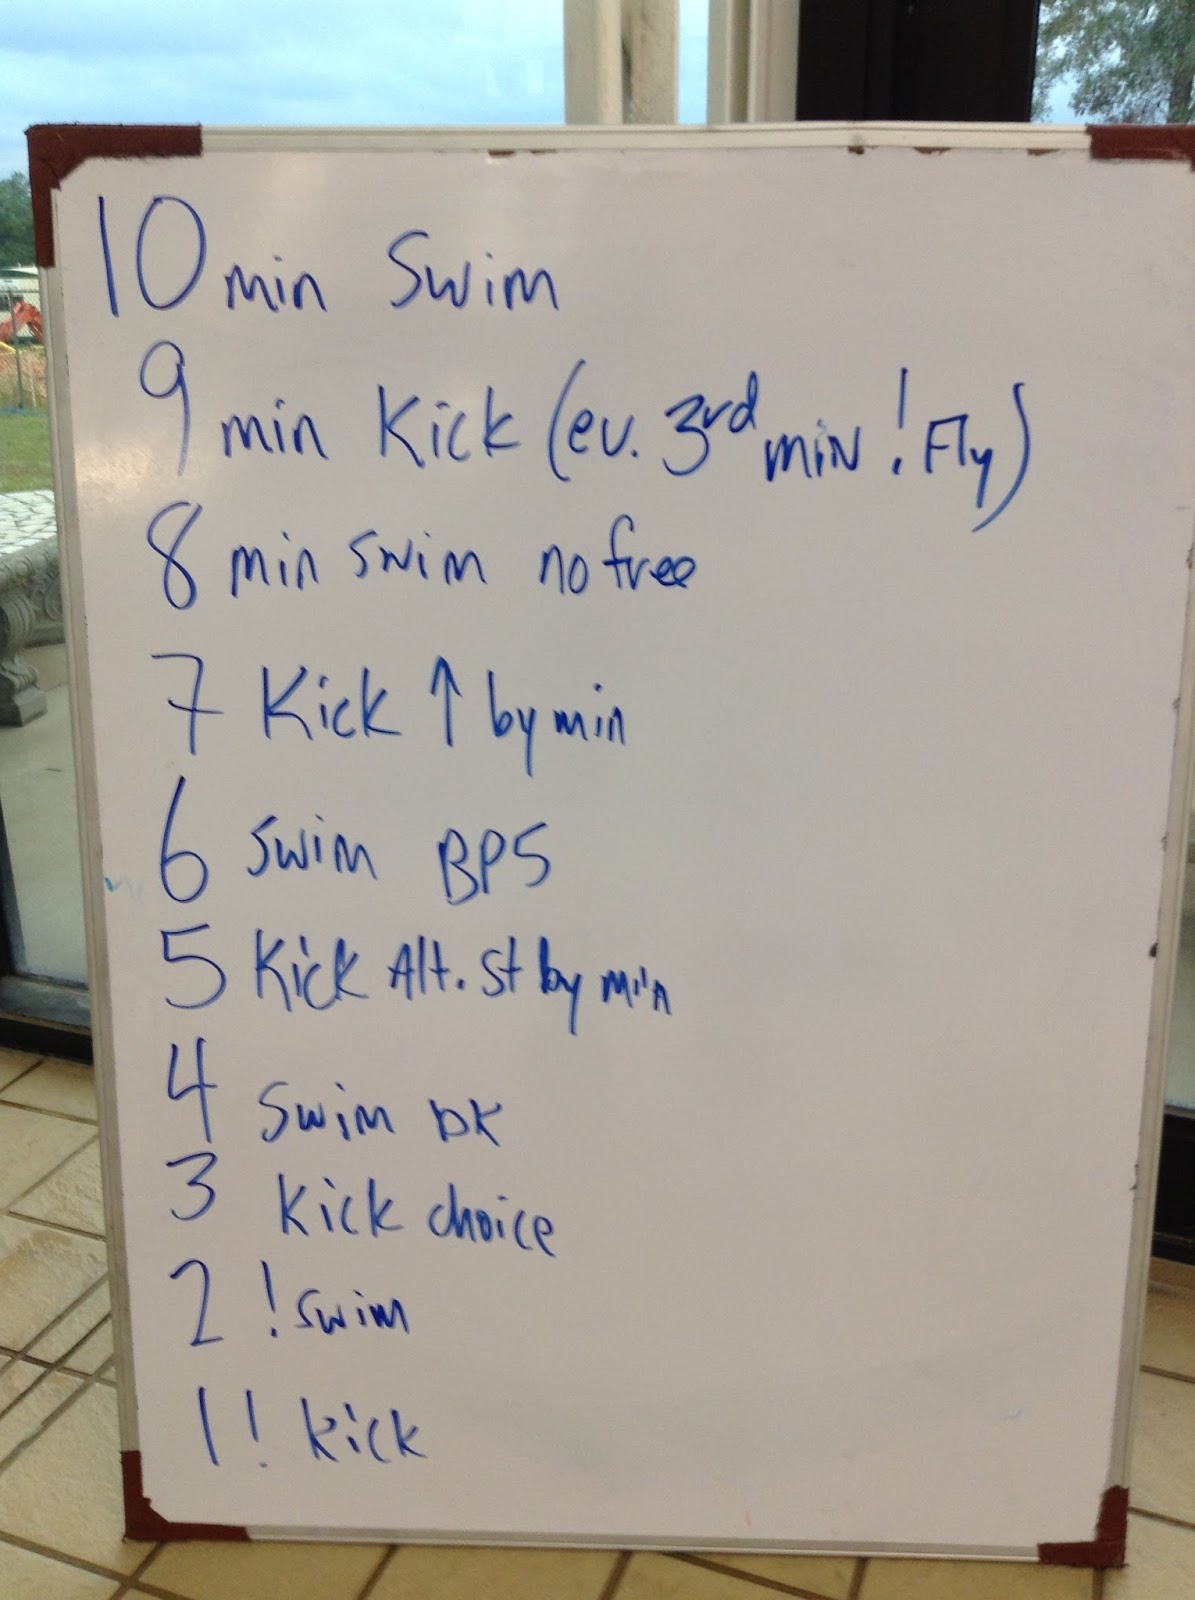 10 min Swim
9 min Kick (ev. 3rd min ! Fly)
8 min swim no free
7 Kick ↑ by min
6 swim BP5
5 Kick Alt. St by min
4 swim bK
3 Kick choice
2 ! swim
1 ! kick